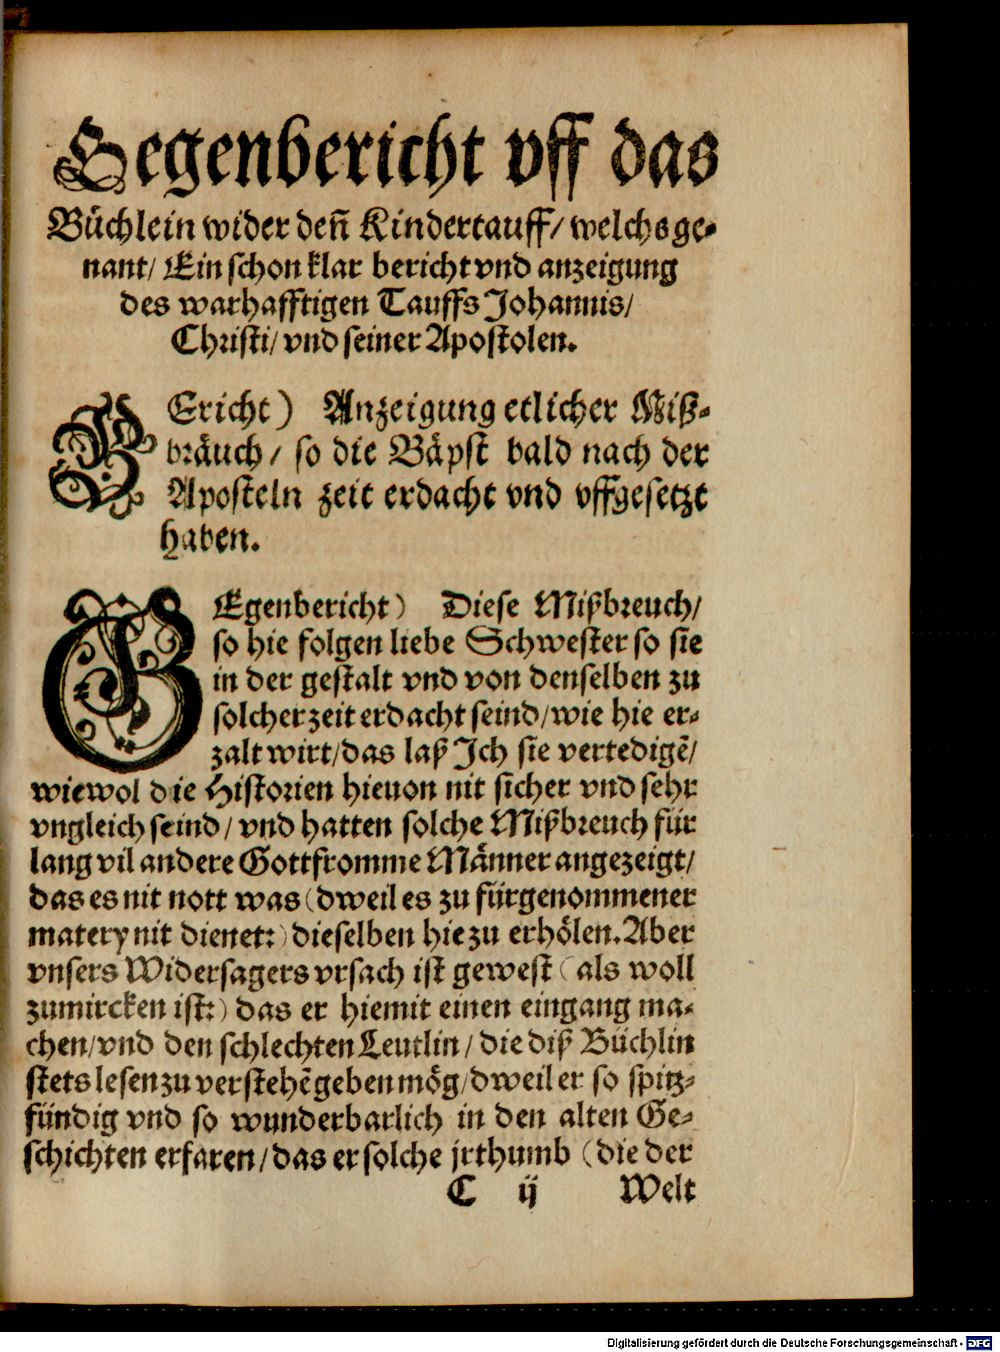 Gegenbericht vff das
Büchlein wider den̄ Kindertauff/ welchs ge⸗
nant/ Ein schon klar bericht vnd anzeigung
des warhafftigen Tauffs Johannis/
Christi/ vnd seiner Apostolen.
BEricht) Anzeigung etlicher Miß⸗
bräuch/ so die Bäpst bald nach der
Aposteln zeit erdacht vnd vffgesetzt
haben.
GEgenbericht) Diese Mißbreuch/
so hie folgen liebe Schwester so sie
in der gestalt vnd von denselben zu
solcher zeit erdacht seind/ wie hie er⸗
zalt wirt/ das laß Ich sie vertedigẽ/
wiewol die Historien hieuon nit sicher vnd sehr
vngleich seind/ vnd hatten solche Mißbreuch für
lang vil andere Gottfromme Männer angezeigt/
das es nit nott was (dweil es zu fürgenommener
matery nit dienet:) dieselben hie zu erhölen. Aber
vnsers Widersagers vrsach ist gewest (als woll
zumircken ist:) das er hiemit einen eingang ma⸗
chen/ vnd den schlechten Leutlin/ die diß Büchlin
stets lesen zu verstehẽ geben mög/ dweil er so spitz⸗
fündig vnd so wunderbarlich in den alten Ge⸗
schichten erfaren/ das er solche jrthumb (die der
C ij Welt
Digitalisierung gefördert durch die Deutsche Forschungsgemeinschaft - DFG